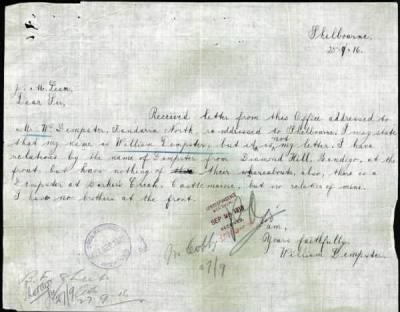 Shelbourne.
25-9-16.
J. M. Lean,
Dear Sir,
Received letter from this Office addressed to
Mr Wm Dempster, Tandarra North, re-addressed to Shelbourne, I may state
that my name is William Dempster, but it is not my letter. I have
relations by the name of Dempster from Diamond Hill, Bendigo, at the
front, but know nothing of their whereabouts, also, there is a
Dempster at Barkers Creek, Castlemaine, but no relative of mine.
I have no brothers at the front.
SEP 1916
I am,
Yours faithfully,
William Dempster.
27/9
27/9
27.9.16